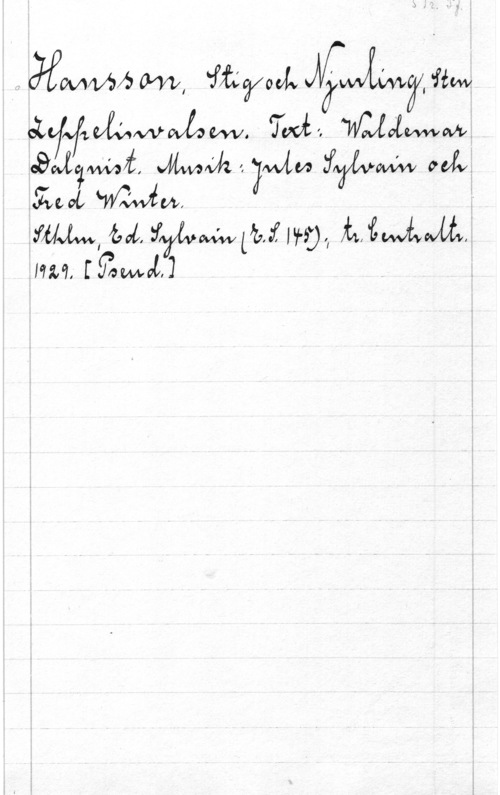 Hansson, Stig och Njurling, Sten
Zeppelinvalsen. Text: Waldemar
Dalquist. Musik: Jules Sylvain och
Fred Winter.
Sthlm, Ed. Sylvain (E.S. 145), tr. Centraltr.
1929. [Pseud.]